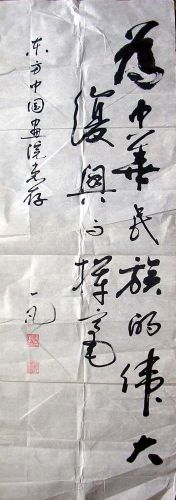 为中华民族的伟大
復興而挥毫
东方中国画院惠存
一凡